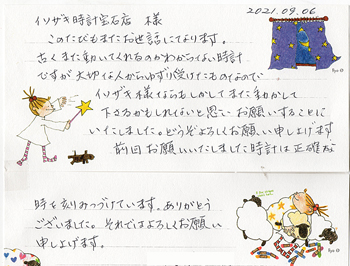 2021.09.06
イソザキ時計宝石店 様
このたびもまたお世話になります。
古くまた動いてくれるのかわからない時計
ですが大切な人からゆずり受けたものなので
イソザキ様ならもしかしてまた動かして
下さるかもしれないと思いお願いすることに
いたしました。どうぞよろしくお願い申し上げます
前回お願いいたしました時計は正確な
時を刻みつづけています。ありがとう
ございました。それではよろしくお願い
申し上げます。